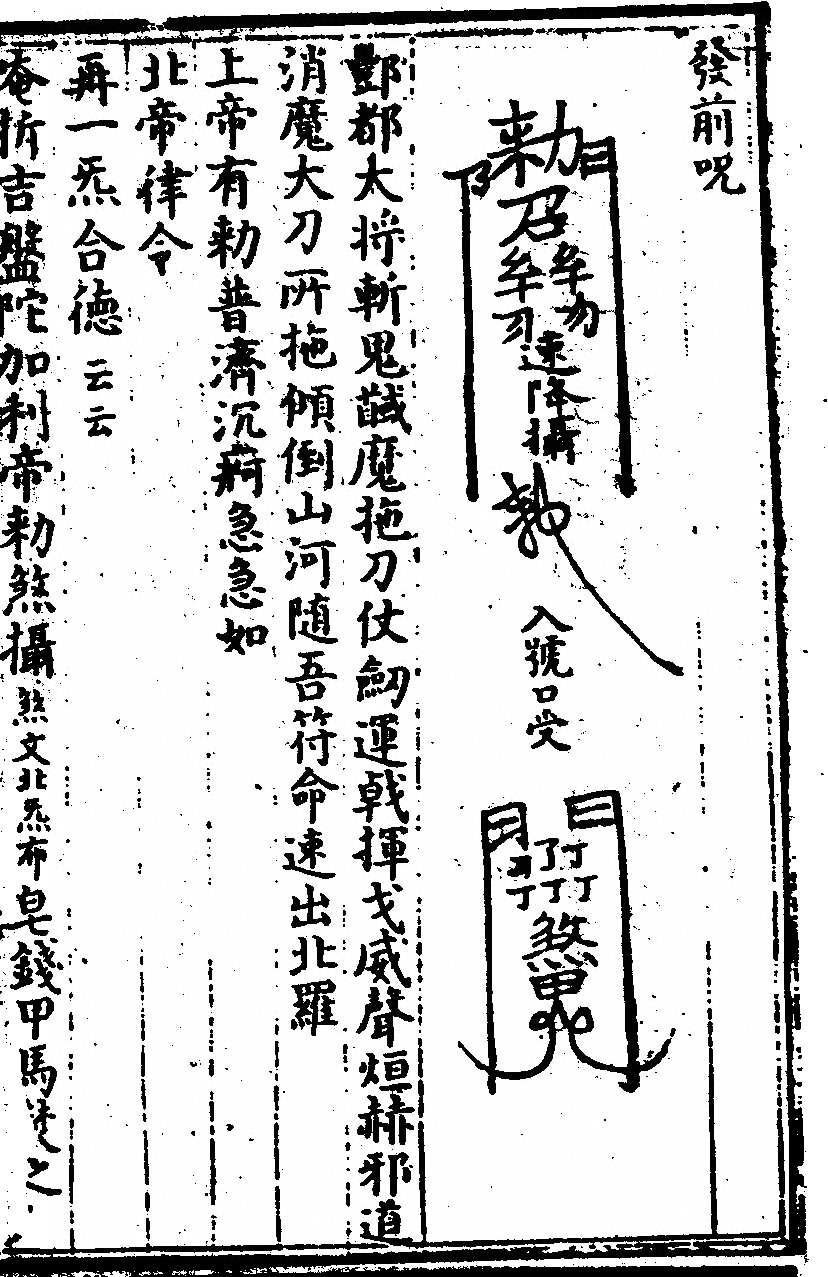 發前咒
勅召
速降攝
入號口受
煞
酆都大將斬鬼馘魔拖刀仗劒運戟揮戈威聲烜赫邪道
消魔大刀所拖傾倒山河随吾符命速出北羅
上帝有勅普濟沉痾急急如
北帝律令
再一炁合德云云
唵折吉盤陀加利帝勅煞攝煞文北炁布皂錢甲馬焚之